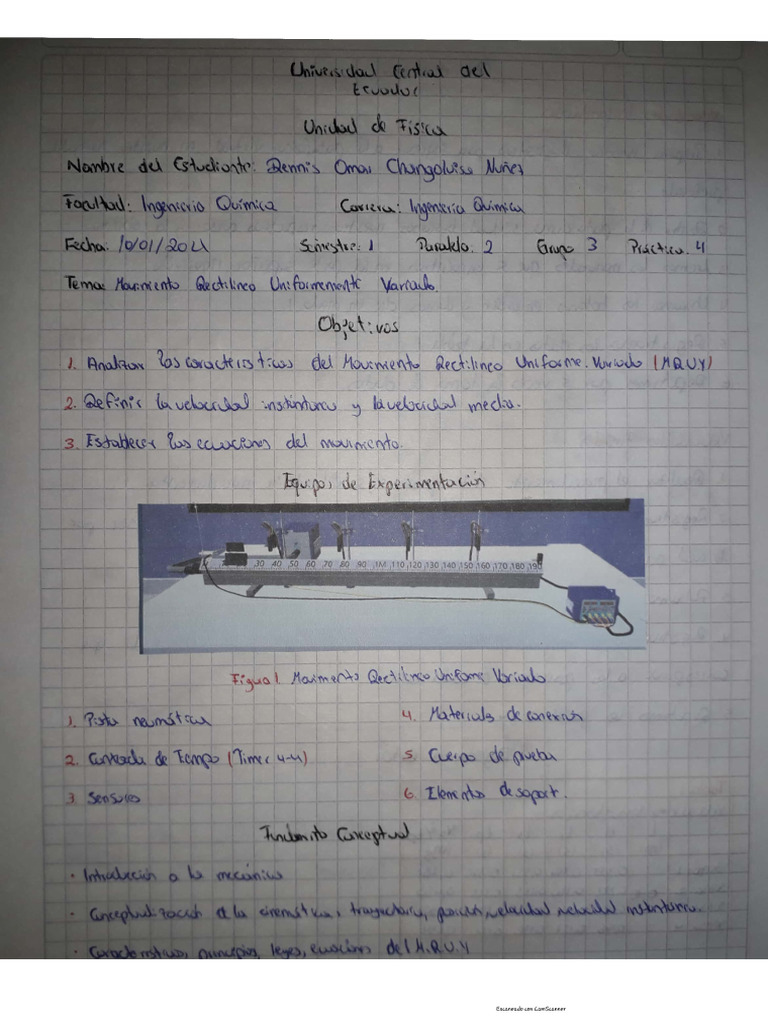 Universidad Central del
Ecuador
Unidad de Física
Nombre del Estudiante: Dennis Omar Changoluisa Nuñez
Facultad: Ingenieria Química Carrera: Ingenieria Química
Fecha: 10/01/2021 Semestre: 1 Paralelo: 2 Grupo 3 Práctica: 4
Tema: Movimiento Rectilineo Uniformemente Variado.
Objetivos
1. Analizar las caracteristicas del Movimiento Rectilineo Uniforme. Variado (M.R.U.V)
2. Definir la velocidad instántanea y la velocidad media.
3. Establecer las ecuaciones del movimiento.
Equipos de Experimentación
30 40 50 60 70 80 90 1M 110 120 130 140 150 160 170 180 190
Figura 1. Movimento Rectilineo Uniforme Variado
1. Pista neumática 4. Materiales de conexión
2. Contador de Tiempo (Timer 4-4) 5. Cuerpo de prueba
3. Sensores 6. Elementos de soport.
Fundamento Conceptual
· Introducción a la mecánica
· Conceptualización de la cinemática, trayectoria, posición, velocidad, velocidad instántanea.
· Caracteristicas, principios, leyes, ecuaciones del M.R.U.V
Escaneado con CamScanner